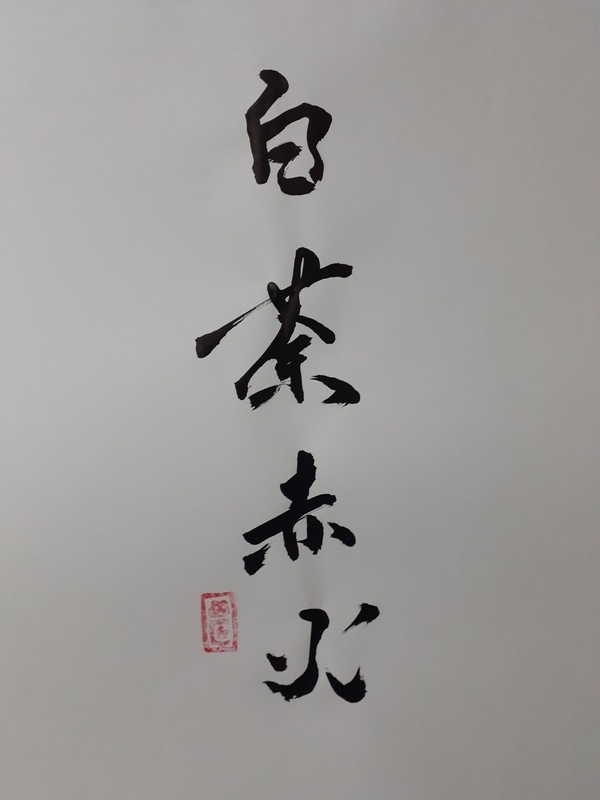 白茶赤火